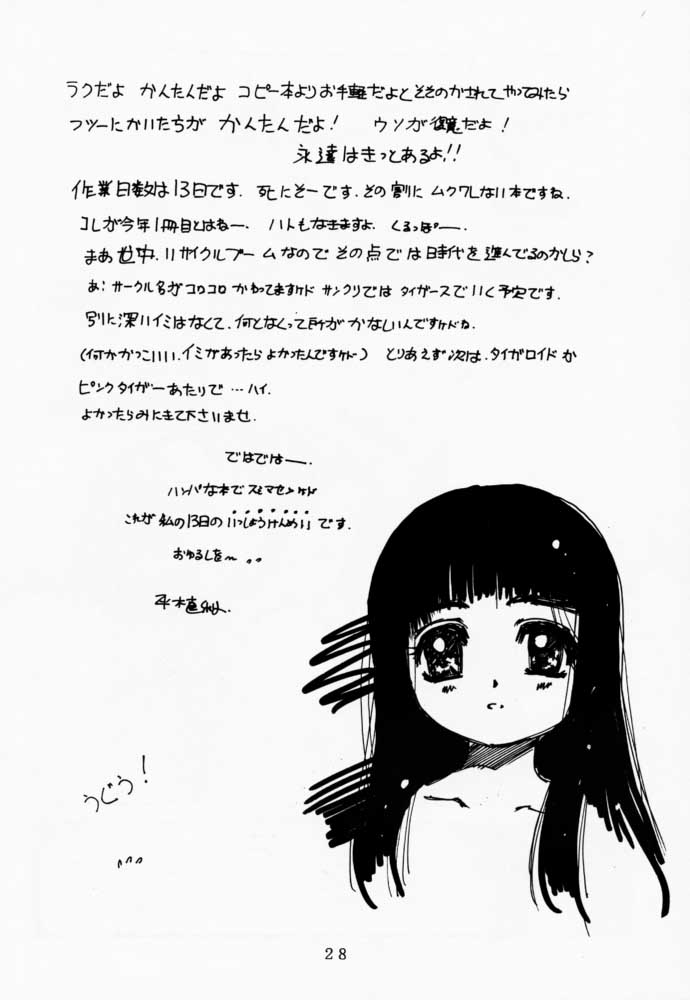 ラクだよ かんたんだよ コピー本よりお手軽だよとそそのかされてやってみたら
フツーにかいたちが かんたんだよ! ウソが覚だよ!
永遠はきっとあるよ!!
作業日数は13日です. 死にそーです. その割に ムクワレない本ですね.
コレが今年1冊目とはねー. ハトもなきますよ. くるっぽー.
まあ世中. リサイクルブームなので その点では時代を進んでるのかしら?
あ! サークル名がコロコロ かわってますケド サンクリでは タイガースでいく予定です.
別に深いイミはなくて. 何となくって所が かなしいんですケドね.
(何かかっこいい. イミがあったら よかったんですケド) とりあえず次は. タイガロイド か
ピンクタイガーあたりで …ハイ.
よかったらみにきて下さいませ.
ではではー.
ハンパな本でスミマセンケド
これが 私の13日の いっしょうけんめい です.
おゆるしを〜
うぐぅ!
28